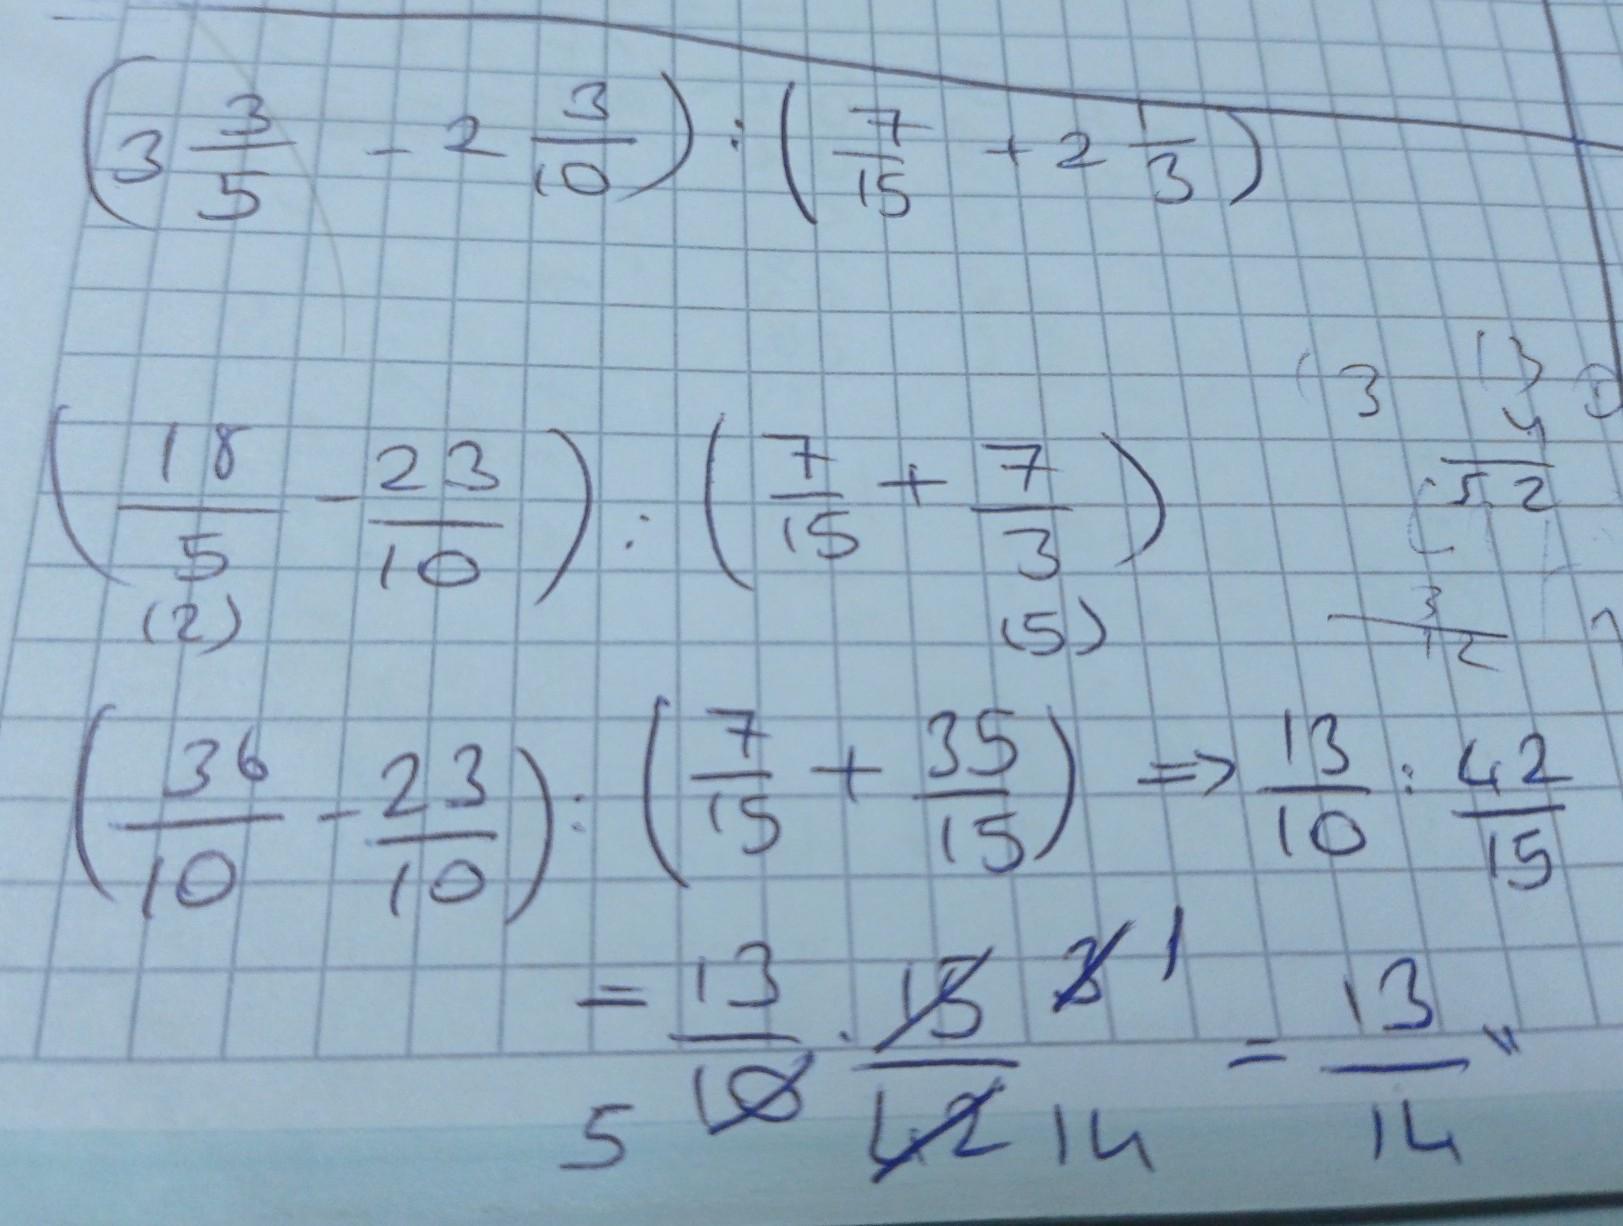 (3 3/5 - 2 3/10) : (7/15 + 2 1/3)
(18/5 - 23/10) : (7/15 + 7/3)
(2) (5)
(36/10 - 23/10) : (7/15 + 35/15) => 13/10 : 42/15
= 13/10 · 15/42 3 1 = 13/14 "
5 14